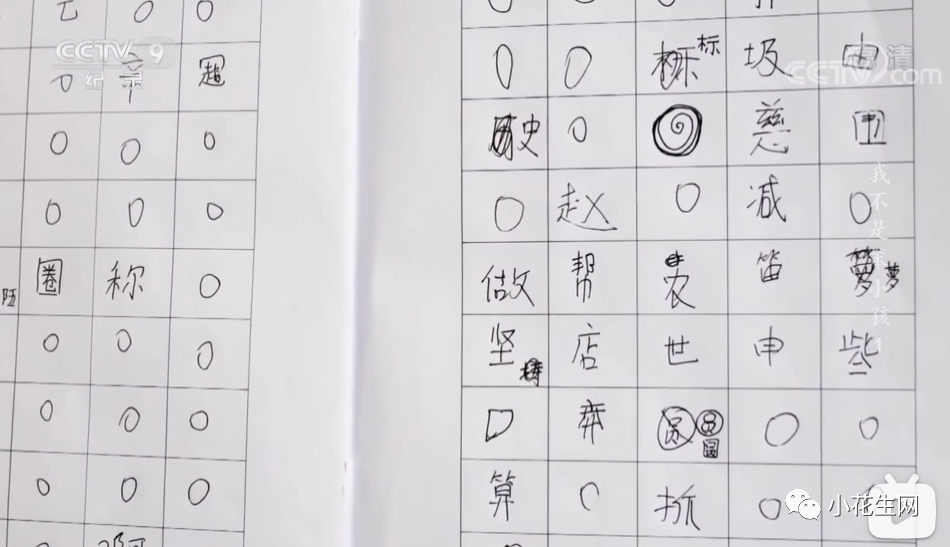 CCTV 9
纪录
CCTV.com
高清
0 0
0 辛 超
0 0 0
0 0 0
圈 称 0
0 0 0
0 0 0
0 0 0
啊
0 0 标 圾 电
史 0 慈
0 赵 0 减 0
做 帮 农 笛 梦
坚 店 世 申 些
弃 圆 0 0
算 0 折 0
我不是
小孩
小花生网